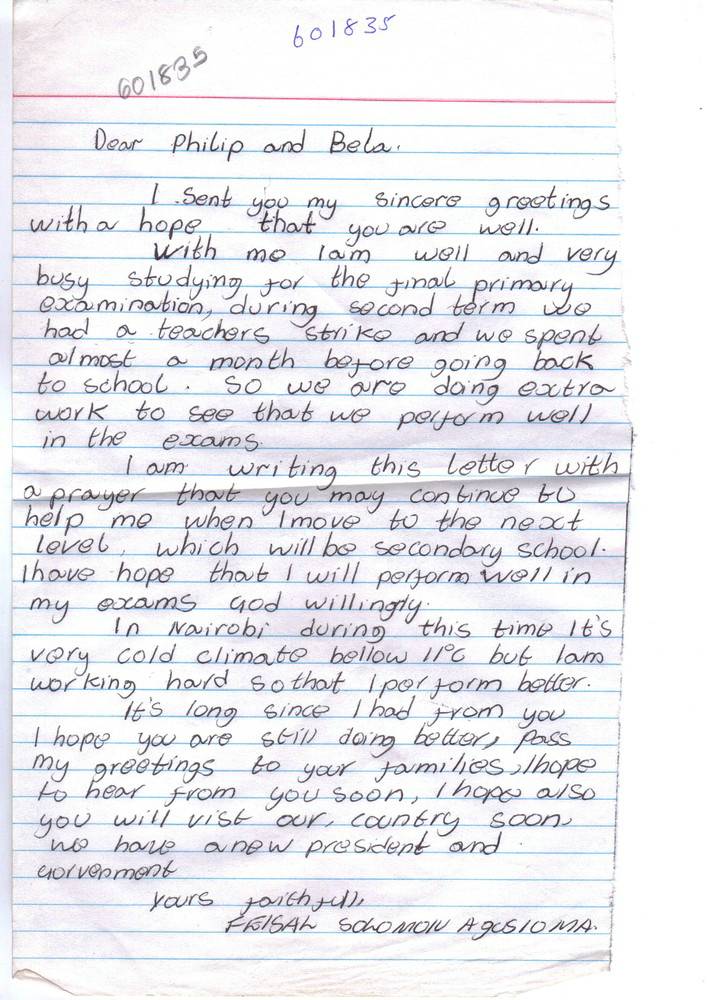 601835
601835
Dear Philip and Bela.
I sent you my sincere greetings
with a hope that you are well.
With me I am well and very
busy studying for the final primary
examination, during second term we
had a teachers strike and we spent
almost a month before going back
to school. So we are doing extra
work to see that we perform well
in the exams.
I am writing this letter with
a prayer that you may continue to
help me when I move to the next
level, which will be secondary school.
I have hope that I will perform well in
my exams God willingly.
In Nairobi during this time It's
very cold climate bellow 11°c but Iam
working hard so that I perform better.
It's long since I had from you
I hope you are still doing better, pass
my greetings to your families, I hope
to hear from you soon, I hope also
you will vist our, country soon,
we have a new president and
Gorvenment
yours faithfull,
FEISAL SOLOMON